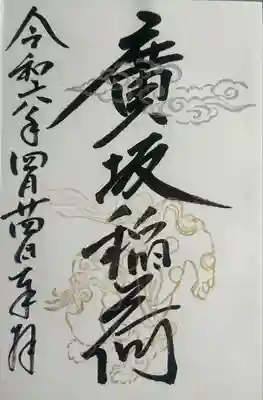 廣坂稲荷
令和六年四月廿四日奉拝